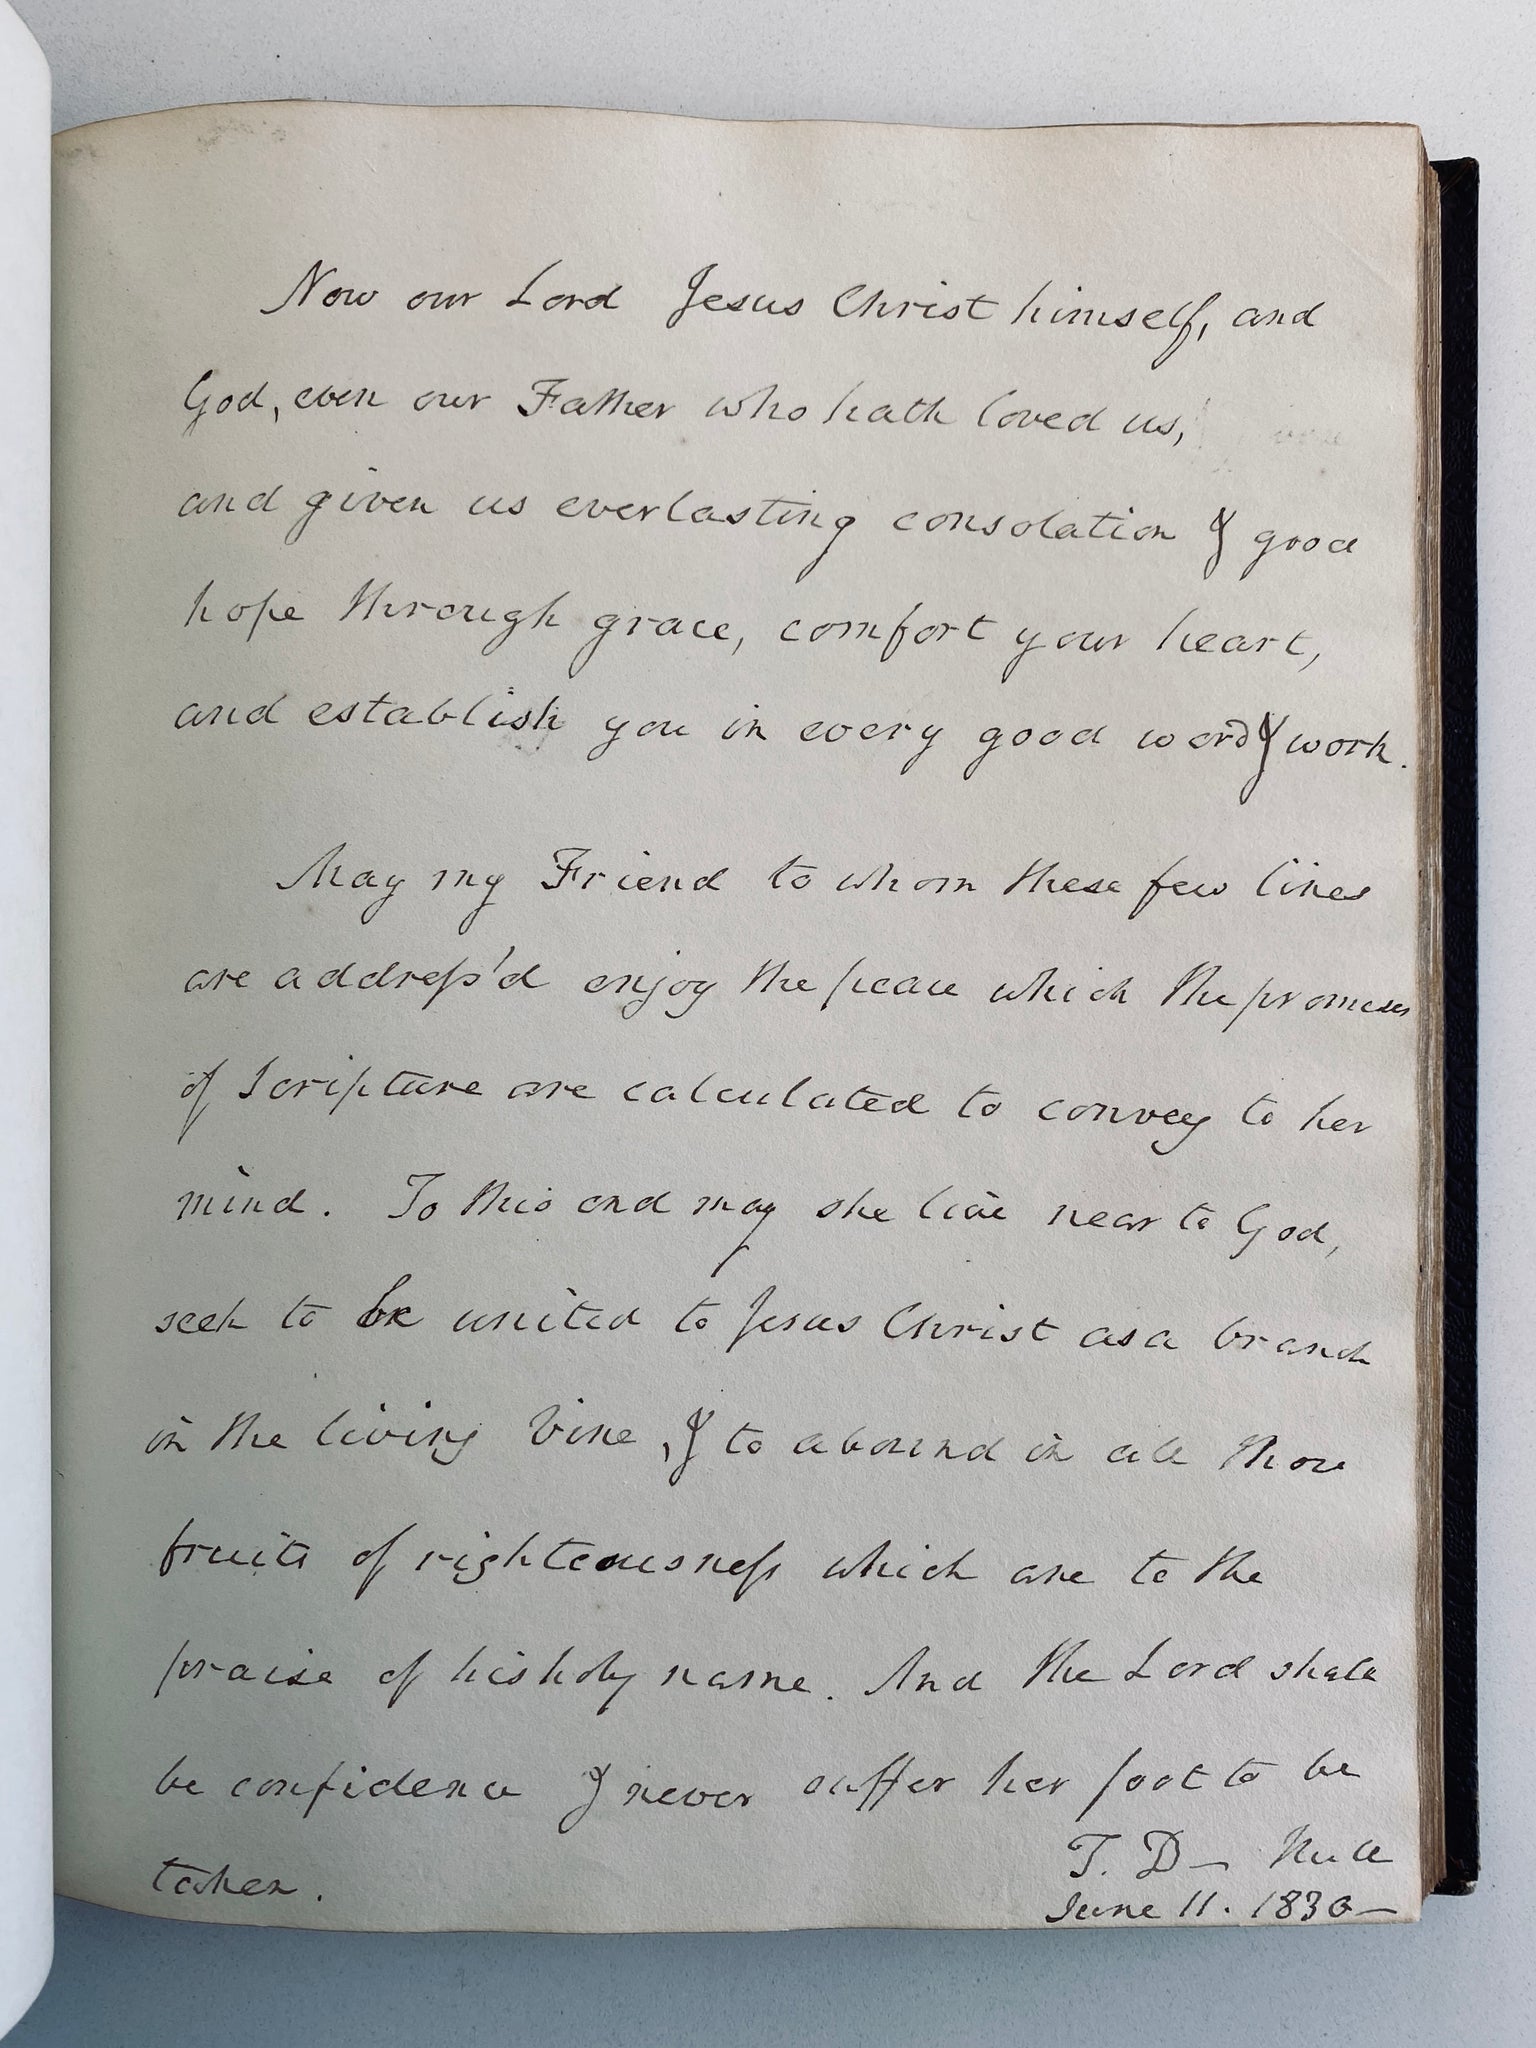 Now our Lord Jesus Christ himself, and
God, even our Father who hath loved us,
and given us everlasting consolation & good
hope through grace, comfort your heart,
and establish you in every good word & work.
May my Friend to whom these few lines
are addreſs'd enjoy the peace which the promises
of Scripture are calculated to convey to her
mind. To this end may she live near to God,
seek to be united to Jesus Christ as a branch
in the living Vine, & to abound in all those
fruits of righteousneſs which are to the
praise of his holy name. And the Lord shall
be confidence & never suffer her foot to be
taken.
T. D— Hull
June 11. 1830—